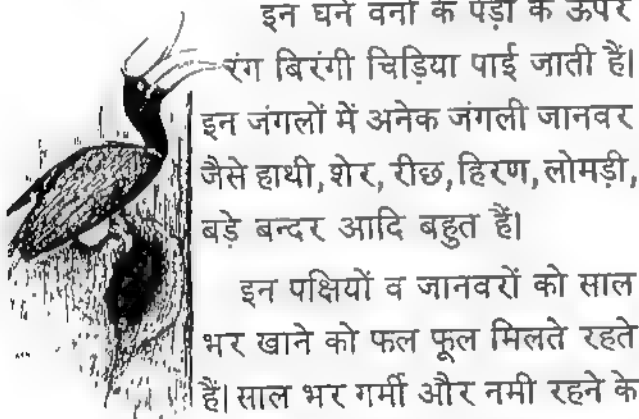 इन घने वनों के पेड़ों के ऊपर
रंग बिरंगी चिड़िया पाई जाती हैं।
इन जंगलों में अनेक जंगली जानवर
जैसे हाथी, शेर, रीछ, हिरण, लोमड़ी,
बड़े बन्दर आदि बहुत हैं।
इन पक्षियों व जानवरों को साल
भर खाने को फल फूल मिलते रहते
हैं। साल भर गर्मी और नमी रहने के